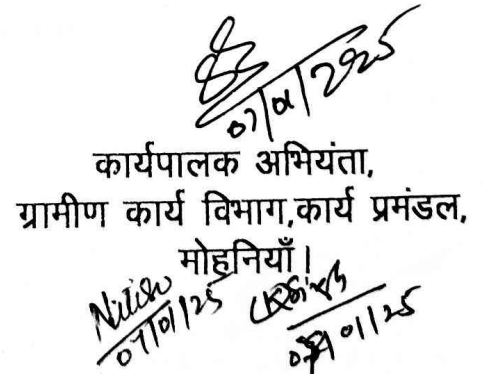 07/01/2025
कार्यपालक अभियंता,
ग्रामीण कार्य विभाग,कार्य प्रमंडल,
मोहनियाँ।
Nitish
07/01/25
01/25